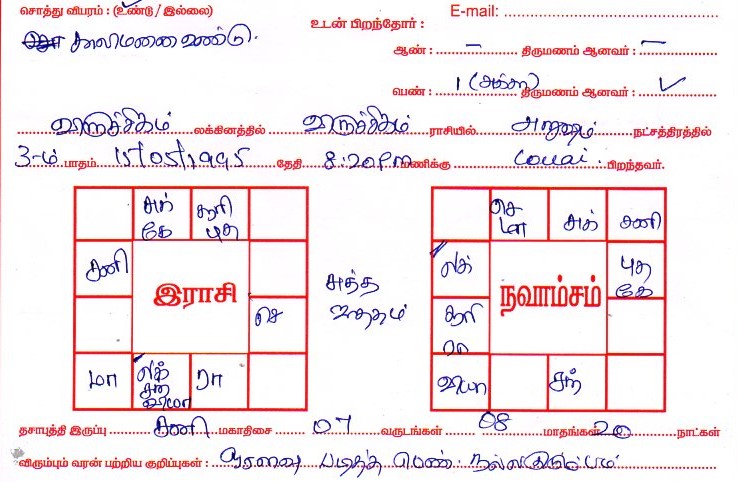 சொத்து விபரம் : (உண்டு / இல்லை)
E-mail:
உடன் பிறந்தோர் :
காலிமனை உண்டு.
ஆண் : – திருமணம் ஆனவர் : –
பெண் : 1 (அக்கா) திருமணம் ஆனவர் : ✓
விருச்சிகம் லக்கினத்தில் விருச்சிகம் ராசியில் அனுஷம் நட்சத்திரத்தில்
3-ம் பாதம் 15/05/1995 தேதி 8:20PM மணிக்கு Covai. பிறந்தவர்.
சுக் கே
சூரி புத
சனி
செ
மா
லக் சந்
ரா
இராசி
செ மா
சுக்
சனி
லக்
புத கே
சூரி ரா
வியா
சந்
நவாம்சம்
சுத்த ஜாதகம்
தசாபுத்தி இருப்பு சனி மகாதிசை 07 வருடங்கள் 08 மாதங்கள் 20 நாட்கள்
விரும்பும் வரன் பற்றிய குறிப்புகள் : படித்த பெண். நல்ல குடும்பம்